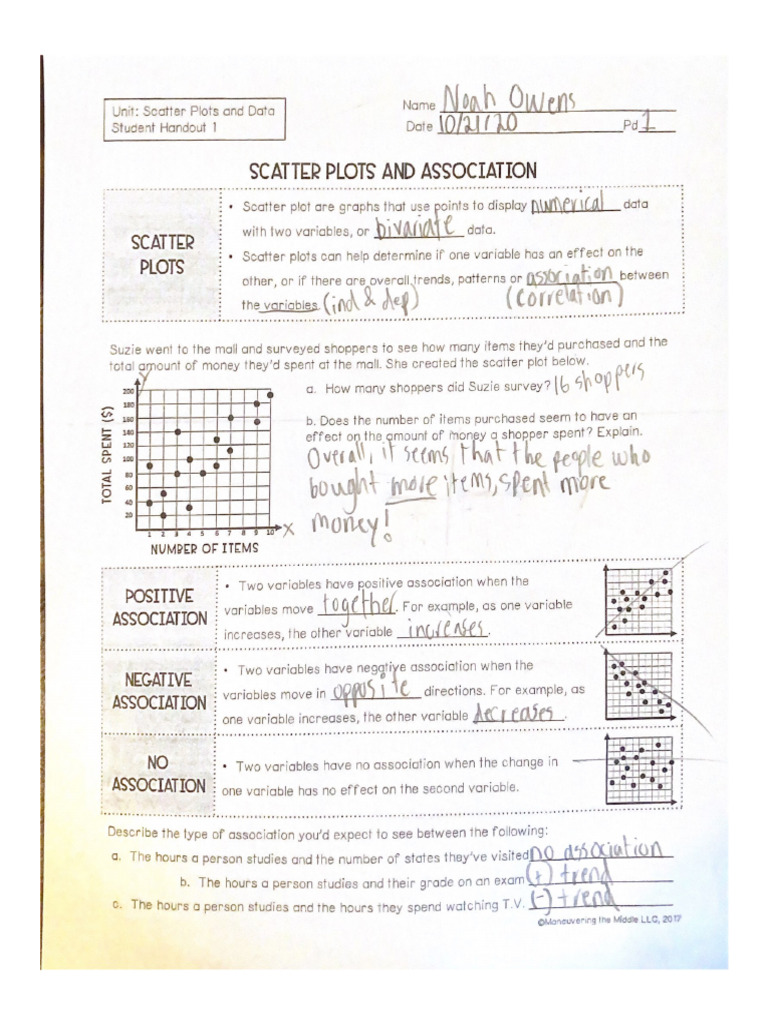 Unit: Scatter Plots and Data
Student Handout 1
Name Noah Owens
Date 10/21/20 Pd 1
SCATTER PLOTS AND ASSOCIATION
SCATTER
PLOTS
• Scatter plot are graphs that use points to display numerical data
with two variables, or bivariate data.
• Scatter plots can help determine if one variable has an effect on the
other, or if there are overall trends, patterns or association between
the variables (ind & dep) (correlation)
Suzie went to the mall and surveyed shoppers to see how many items they'd purchased and the
total amount of money they'd spent at the mall. She created the scatter plot below.
y
TOTAL SPENT ($)
200
180
160
140
120
100
80
60
40
20
1 2 3 4 5 6 7 8 9 10
x
NUMBER OF ITEMS
a. How many shoppers did Suzie survey? 16 shoppers
b. Does the number of items purchased seem to have an
effect on the amount of money a shopper spent? Explain.
Overall, it seems that the people who
bought more items, spent more
money!
POSITIVE
ASSOCIATION
• Two variables have positive association when the
variables move together. For example, as one variable
increases, the other variable increases.
NEGATIVE
ASSOCIATION
• Two variables have negative association when the
variables move in opposite directions. For example, as
one variable increases, the other variable decreases.
NO
ASSOCIATION
• Two variables have no association when the change in
one variable has no effect on the second variable.
Describe the type of association you'd expect to see between the following:
a. The hours a person studies and the number of states they've visited no association
b. The hours a person studies and their grade on an exam (+) trend
c. The hours a person studies and the hours they spend watching T.V. (-) trend
©Maneuvering the Middle LLC, 2017